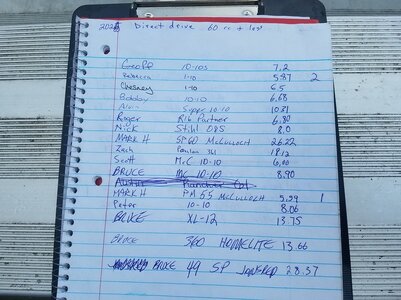 Direct drive 60 cc + less
Geoff 10-10s 7.2
Rebecca 1-10 5.87 2
Chesney 1-10 6.5
Bobby 10-10 6.68
Super 10-10 10.31
Roger Partner 6.80
Nick Stihl 8.0
MARK H SP60 McCulloch 26.22
Zach
Scott McC 10-10 6.00
BRUCE MC 10-10 8.90
MARK H PM 55 McCulloch 5.59 1
Peter 10-10 8.06
BRUCE XL-12 13.75
BRUCE 360 HOMELITE 13.66
BRUCE 49 SP JONSRED 28.57